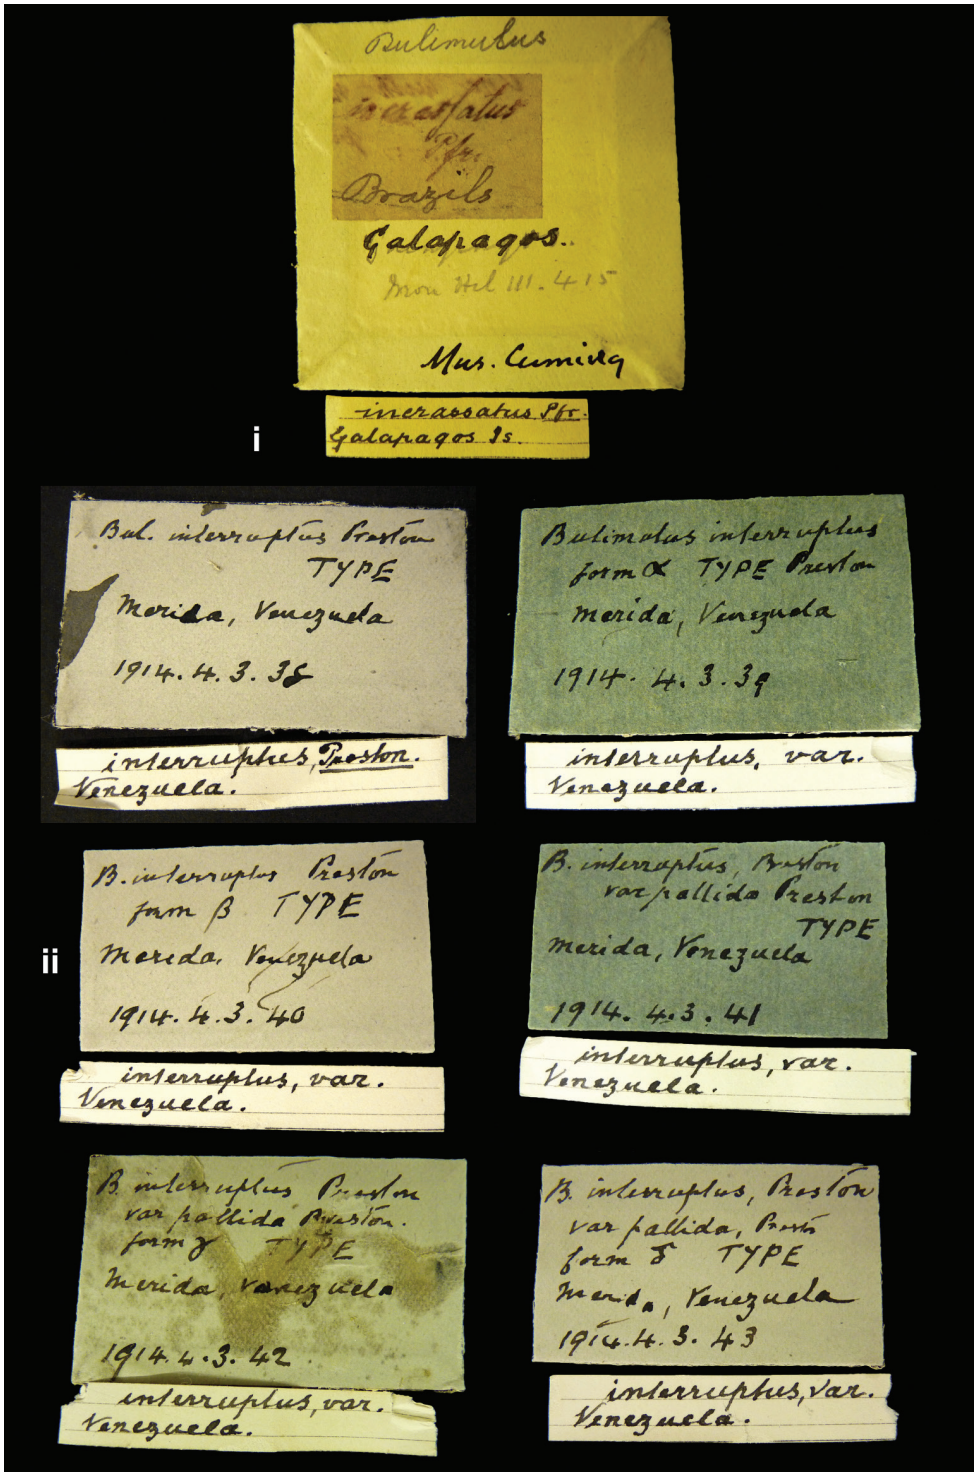 Bulimulus
incrassatus
Pfr.
Brazils
Galapagos.
Mon Hel III. 415
Mus. Cuming
incrassatus Pfr.
Galapagos Is.
i
Bul. interruptus Preston
TYPE
Merida, Venezuela
1914. 4. 3. 38
interruptus, Preston.
Venezuela.
Bulimulus interruptus
form α TYPE Preston
Merida, Venezuela
1914. 4. 3. 39
interruptus, var.
Venezuela.
ii
B. interruptus Preston
form β TYPE
Merida, Venezuela
1914. 4. 3. 40
interruptus, var.
Venezuela.
B. interruptus, Preston
var pallida Preston
TYPE
Merida, Venezuela
1914. 4.3. 41
interruptus, var.
Venezuela.
B. interruptus Preston
var pallida Preston.
form γ TYPE
Merida, Venezuela
1914. 4. 3. 42
interruptus, var.
Venezuela.
B. interruptus, Preston
var pallida, Prestn
form δ TYPE
Merida, Venezuela
1914. 4. 3. 43
interruptus, var.
Venezuela.